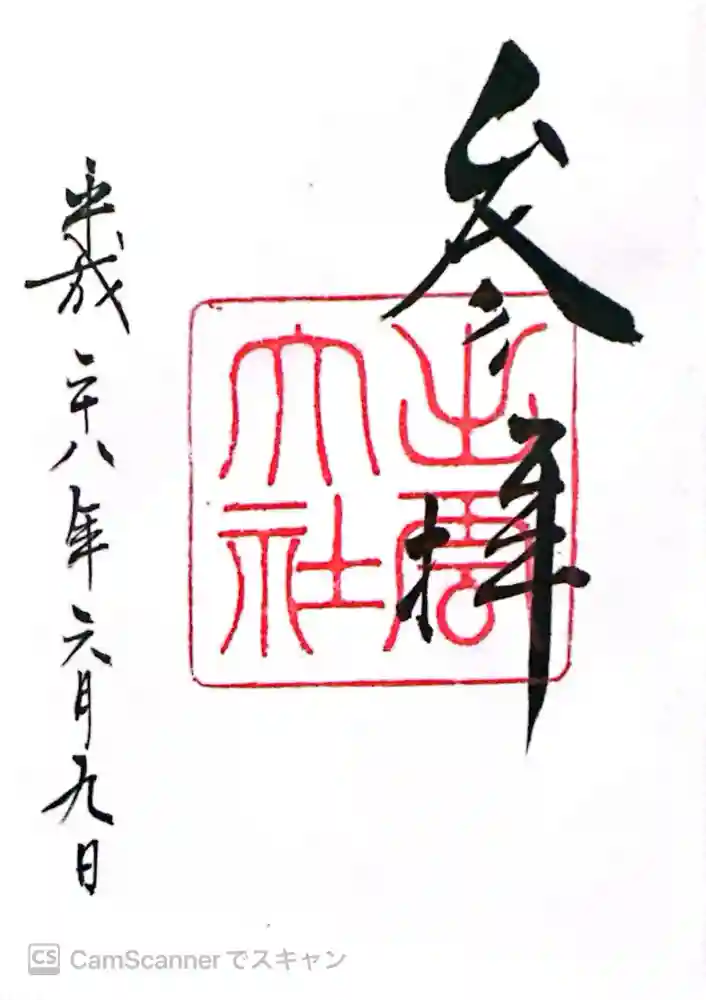 参拝
出雲大社
平成二十八年六月九日
CS CamScannerでスキャン